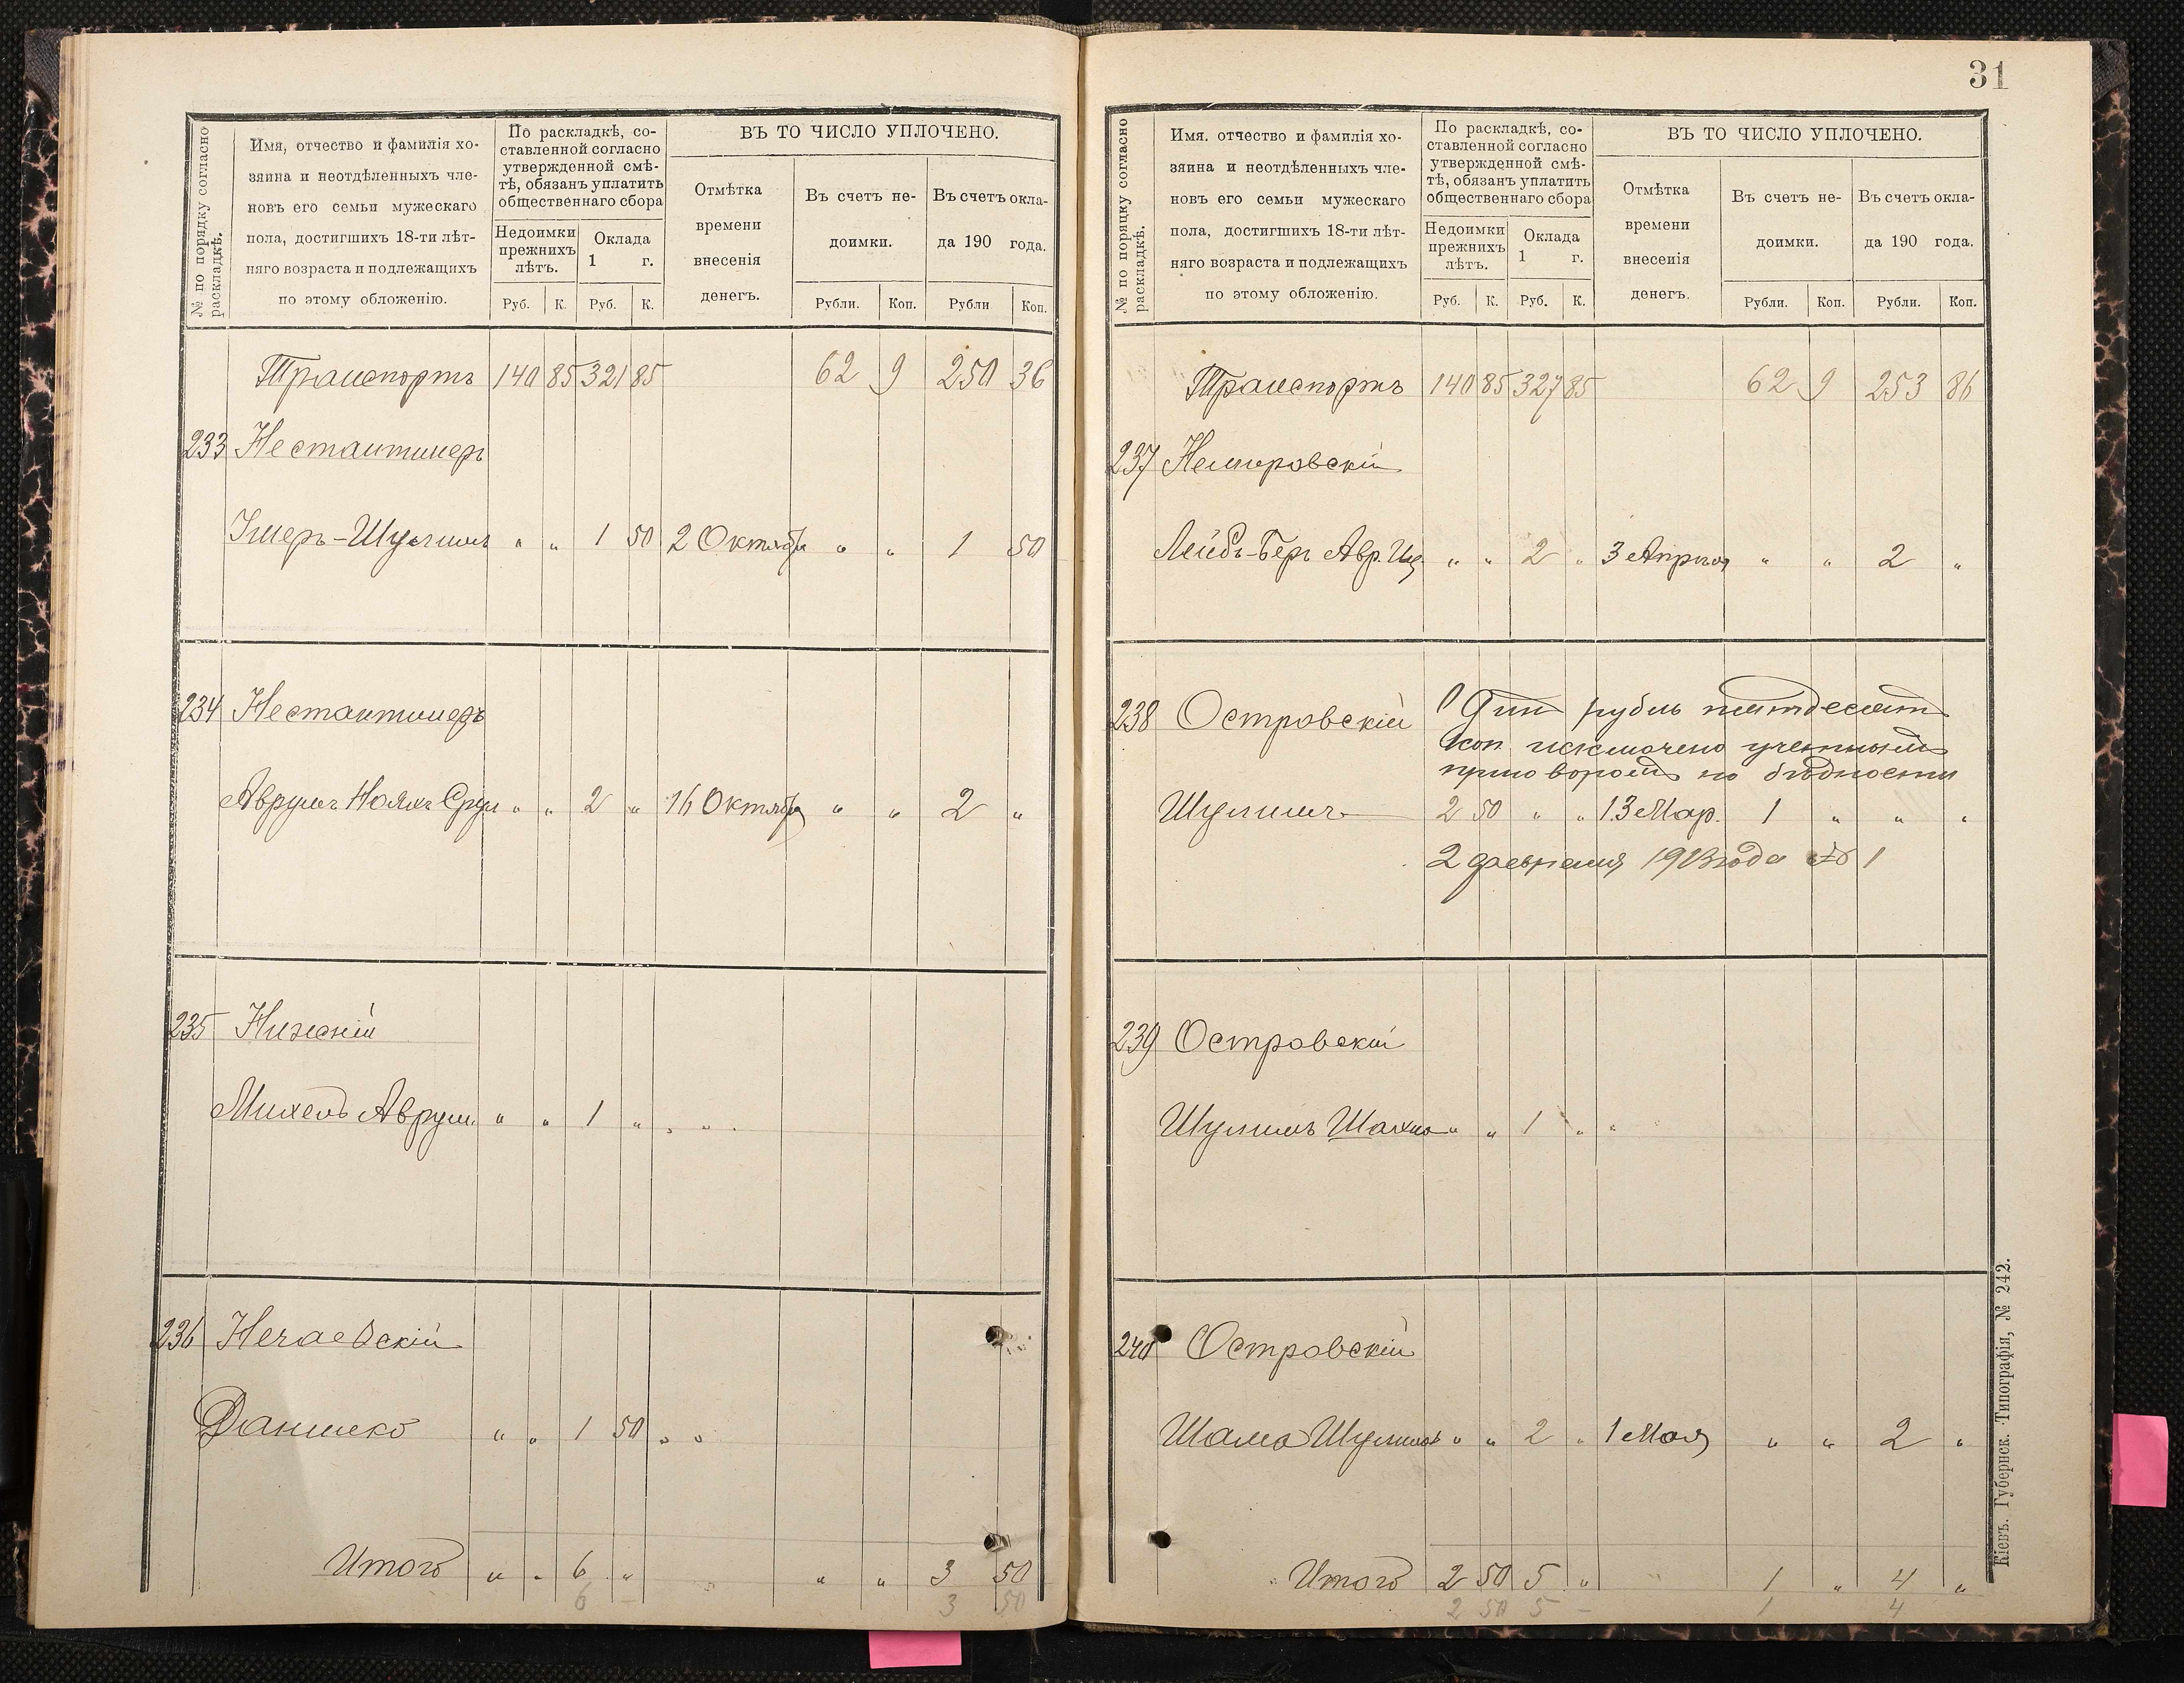 № по порядку согласно
раскладкѣ.
Имя, отчество и фамилія хо-
зяина и неотдѣленныхъ чле-
новъ его семьи мужескаго
пола, достигшихъ 18-ти лѣт-
няго возраста и подлежащихъ
по этому обложенію.
По раскладкѣ, со-
ставленной согласно
утвержденной смѣ-
тѣ, обязанъ уплатить
общественнаго сбора
Недоимки
прежнихъ
лѣтъ.
Оклада
1 г.
Руб. К. Руб. К.
ВЪ ТО ЧИСЛО УПЛОЧЕНО.
Отмѣтка
времени
внесенія
денегъ.
Въ счетъ не-
доимки.
Въ счетъ окла-
да 190 года.
Рубли. Коп. Рубли Коп.
Транспортъ 140 85 321 85 62 9 250 36
233 Нестантинеръ
Умеръ-Шулимъ " " 1 50 2 Октября " " 1 50
234 Нестантинеръ
Аврумъ Нояхъ Срул " " 2 " 16 Октября " " 2 "
235 Нижній
Михель Аврум. " " 1 " " "
236 Нечаевскій
Данилко " " 1 50 " "
Итого " " 6 " " " 3 50
6 – 3 50
31
№ по порядку согласно
раскладкѣ.
Имя. отчество и фамилія хо-
зяина и неотдѣленныхъ чле-
новъ его семьи мужескаго
пола, достигшихъ 18-ти лѣт-
няго возраста и подлежащихъ
по этому обложенію.
По раскладкѣ, со-
ставленной согласно
утвержденной смѣ-
тѣ, обязанъ уплатить
общественнаго сбора
Недоимки
прежнихъ
лѣтъ.
Оклада
1 г.
Руб. К. Руб. К.
ВЪ ТО ЧИСЛО УПЛОЧЕНО.
Отмѣтка
времени
внесенія
денегъ.
Въ счетъ не-
доимки.
Въ счетъ окла-
да 190 года.
Рубли. Коп. Рубли. Коп.
Транспортъ 140 85 327 85 62 9 253 86
237 Немировскій
Лейбъ-Беръ Авр. " " 2 " 3 Апрѣля " " 2 "
238 Островскій
Один рубль пятдесят
коп исключено учетным
приговором по бѣдности
Шулимъ 2 50 " " 13 Мар. 1 " " "
2 февраля 1913 года № 1
239 Островскій
Шулимъ Шахно " " 1 " "
240 Островскій
Шама Шулимов " " 2 " 1 Мая " " 2 "
Итого 2 50 5 " 1 " 4 "
2 50 5 – 1 4
Кіевъ. Губернск. Типографія, № 242.